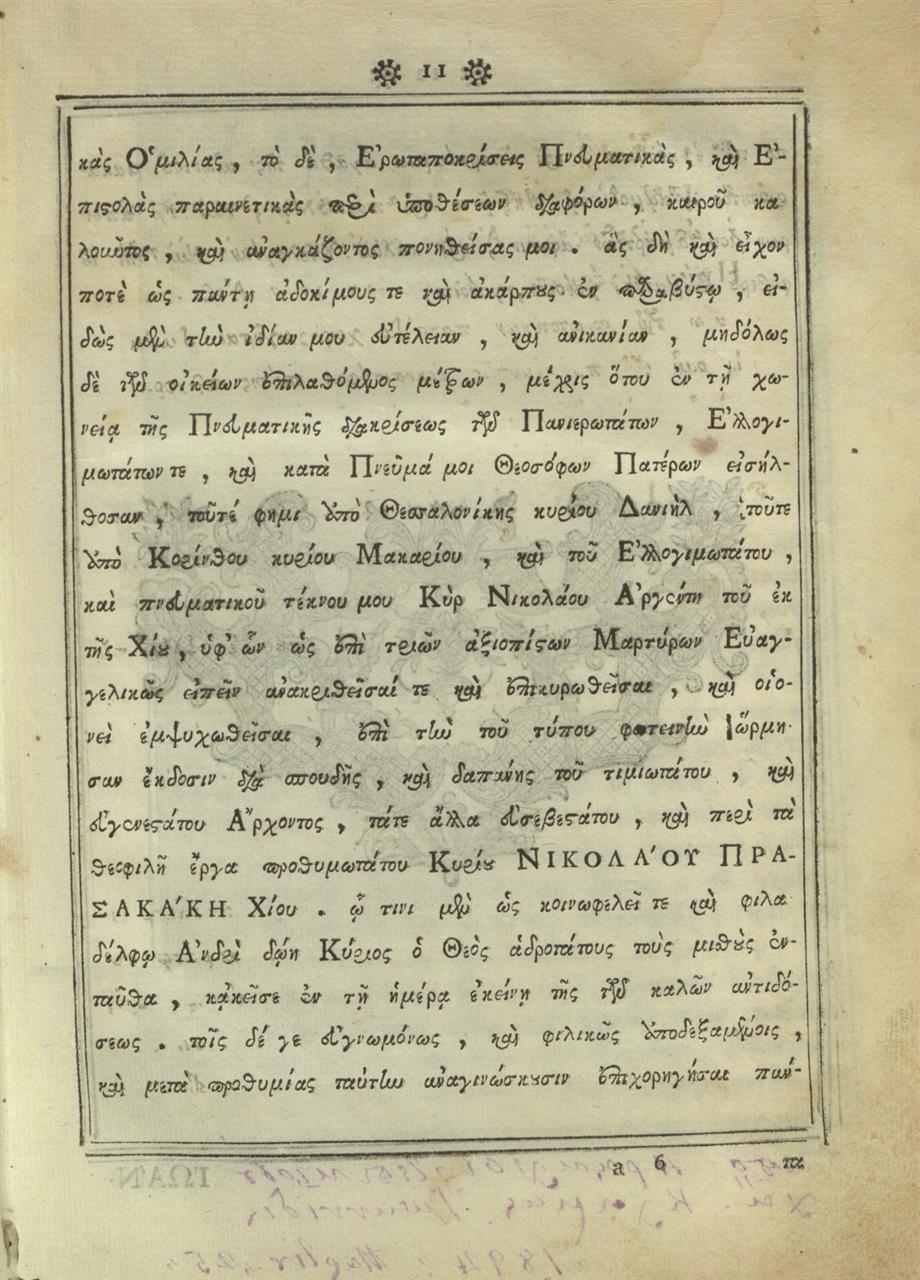 11
κὰς Ὁμιλίας, τὸ δὲ, Ἐρωταποκρίσεις Πνευματικὰς, καὶ Ἐ-
πιστολὰς παραινετικὰς περὶ ὑποθέσεων διαφόρων, καιροῦ κα
λοῦντος, καὶ ἀναγκάζοντος πονηθείσας μοι. ἃς δὴ καὶ εἶχον
ποτὲ ὡς πάντῃ ἀδοκίμους τε καὶ ἀκάρπους ἐν παραβύστῳ, εἰ-
δὼς μὲν τὴν ἰδίαν μου εὐτέλειαν, καὶ ἀνικανίαν, μηδόλως
δὲ τῶν οἰκείων ἐπιλαθόμενος μέτρων, μέχρις ὅτου ἐν τῇ χω-
νείᾳ τῆς Πνευματικῆς διακρίσεως τῶν Πανιερωτάτων, Ἐλλογι-
μωτάτων τε, καὶ κατὰ Πνεῦμά μοι Θεοσόφων Πατέρων εἰσήλ-
θοσαν, τοῦτέ φημι ἀπὸ Θεσσαλονίκης κυρίου Δανιὴλ, τοῦτε
ἀπὸ Κορίνθου κυρίου Μακαρίου, καὶ τοῦ Ἐλλογιμωτάτου,
καὶ πνευματικοῦ τέκνου μου Κὺρ Νικολάου Ἀργέντη τοῦ ἐκ
τῆς Χίου, ὑφ' ὧν ὡς ἐπὶ τριῶν ἀξιοπίστων Μαρτύρων Εὐαγ-
γελικῶς εἰπεῖν ἀνακριθεῖσαί τε καὶ ἐπικυρωθεῖσαι, καὶ οἱο-
νεὶ ἐμψυχωθεῖσαι, ἐπὶ τὴν τοῦ τύπου φωτεινὴν ὥρμη-
σαν ἔκδοσιν διὰ σπουδῆς, καὶ δαπάνης τοῦ τιμιωτάτου, καὶ
εὐγενεστάτου Ἄρχοντος, τάτε ἄλλα εὐσεβεστάτου, καὶ περὶ τὰ
θεοφιλῆ ἔργα προθυμωτάτου Κυρίου ΝΙΚΟΛΑΌΥ ΠΡΑ-
ΣΑΚΑΚΗ Χίου. ᾧ τινι μὲν ὡς κοινωφελεῖ τε καὶ φιλα
δέλφῳ Ἀνδρὶ δῴη Κύριος ὁ Θεὸς ἁδροτάτους τοὺς μισθοὺς ἐν-
ταῦθα, κᾀκεῖσε ἐν τῇ ἡμέρᾳ ἐκείνῃ τῆς τῶν καλῶν ἀντιδό-
σεως. τοῖς δέ γε εὐγνωμόνως, καὶ φιλικῶς ὑποδεξαμένοις,
καὶ μετὰ προθυμίας ταύτην ἀναγινώσκουσιν ἐπιχορηγήσαι παν-
a 6 τα